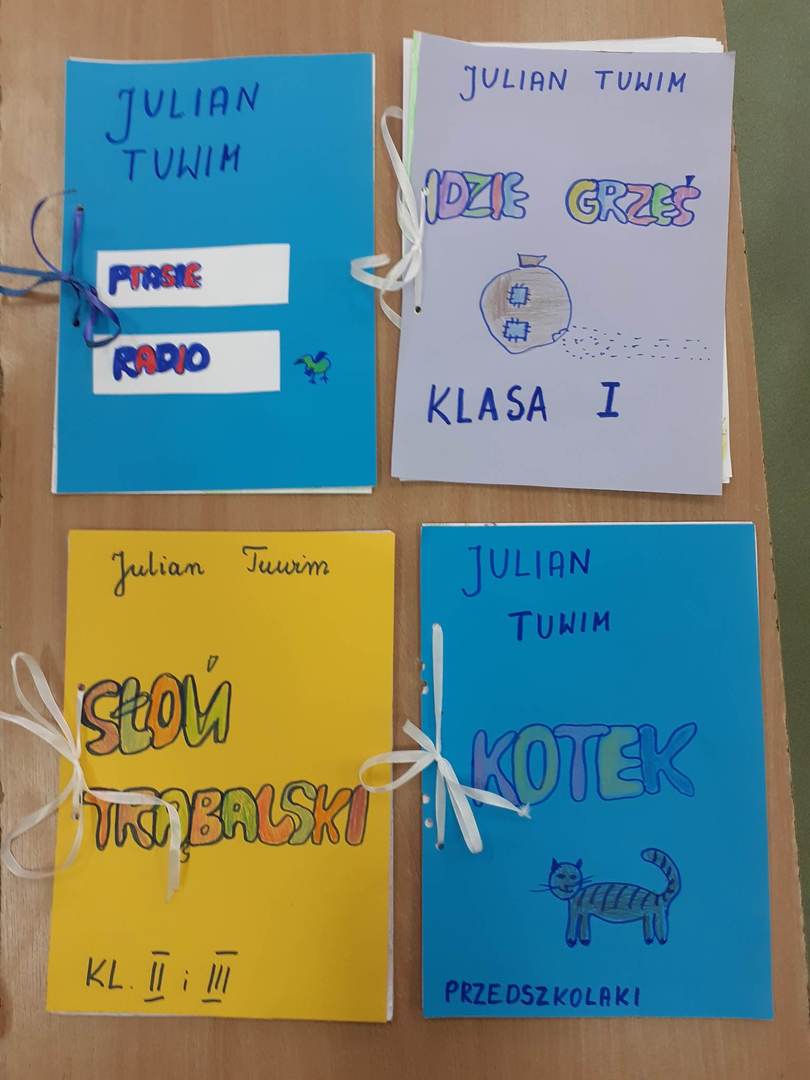 JULIAN
TUWIM
PTASIE
RADIO
JULIAN TUWIM
IDZIE GRZEŚ
KLASA I
Julian Tuwim
SŁOŃ
TRĄBALSKI
KL. II i III
JULIAN
TUWIM
KOTEK
PRZEDSZKOLAKI